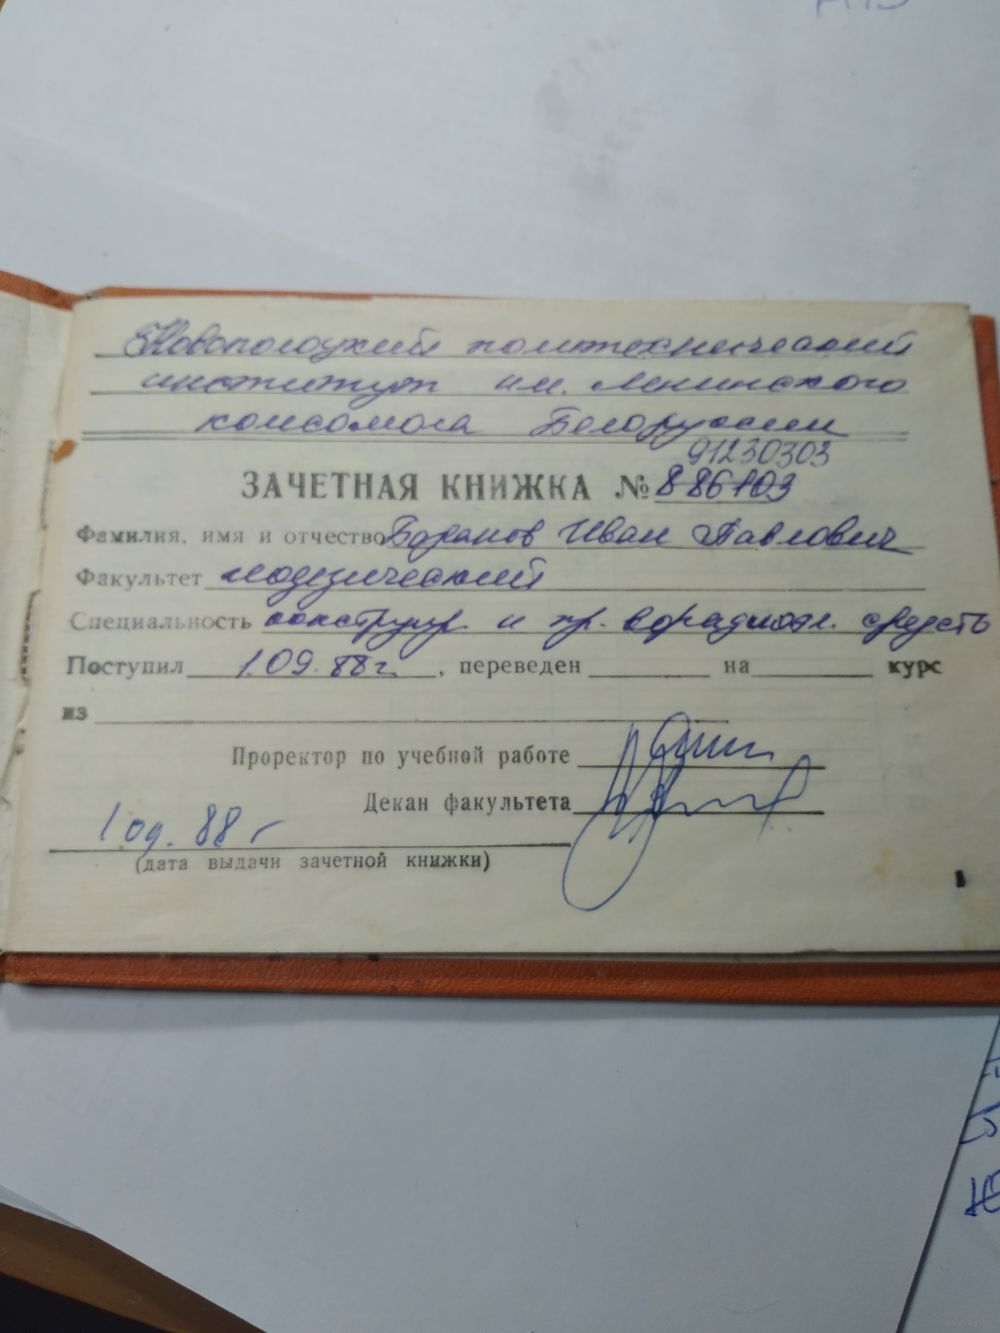 Новополоцкий политехнический
институт им. Ленинского
комсомола Белоруссии
91230303
ЗАЧЕТНАЯ КНИЖКА № 886103
Фамилия, имя и отчество Баранов Иван Павлович
Факультет
Специальность конструир. и пр. средств
Поступил 1.09.88г. , переведен на курс
из
Проректор по учебной работе
Декан факультета
1.09.88 г
(дата выдачи зачетной книжки)